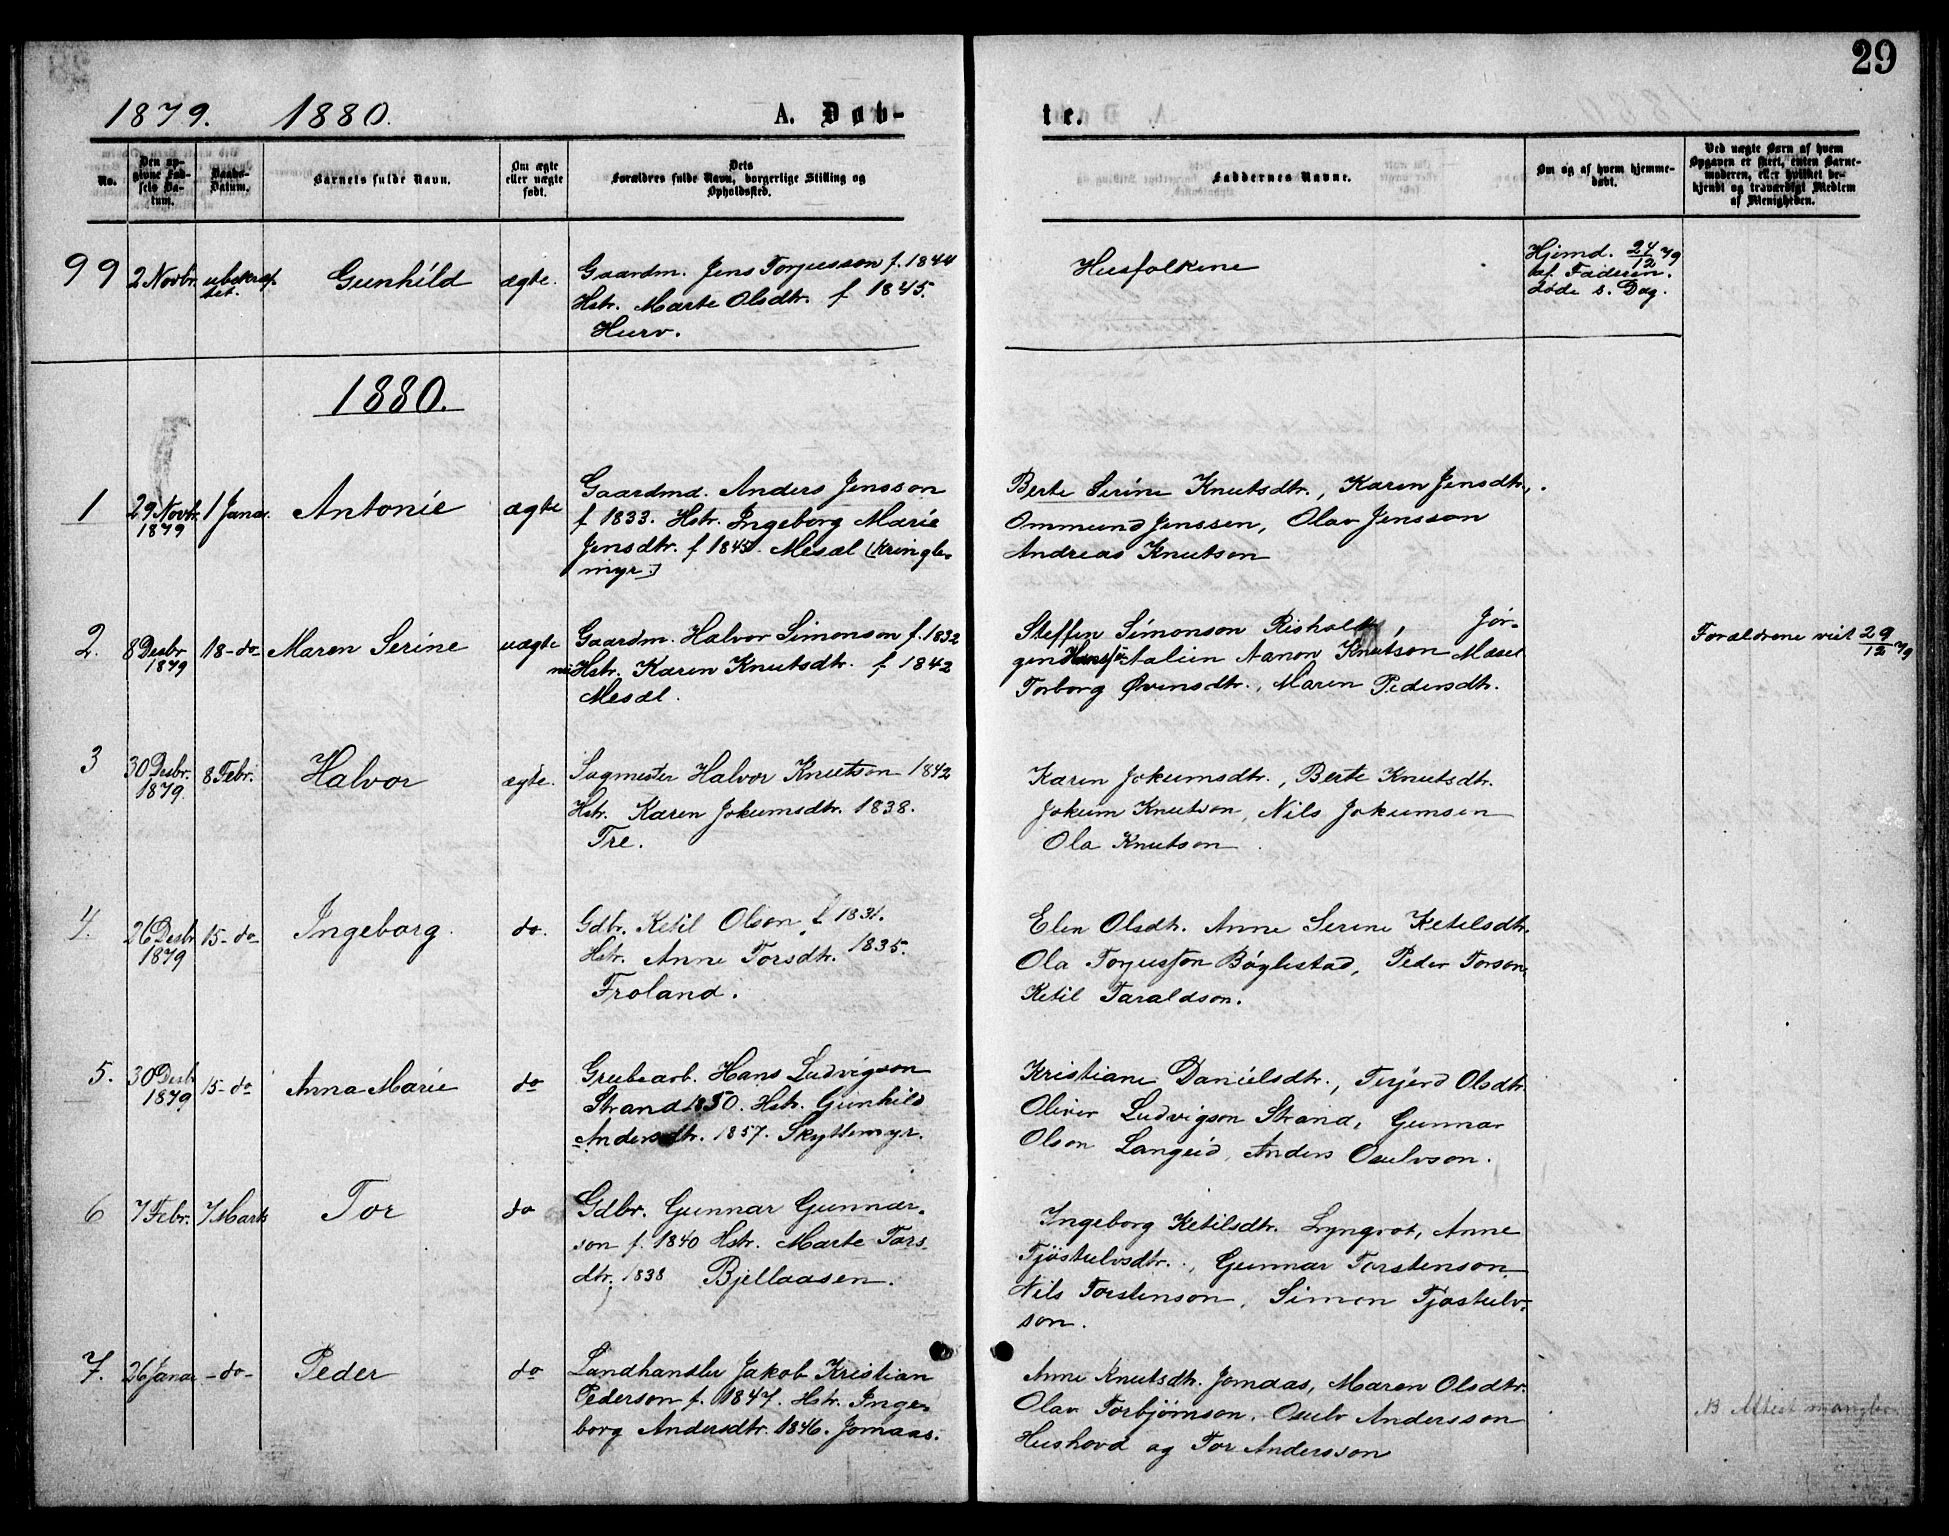 29
1879. 1880. A. Døb- te.
No. Den opgivne Fødsels Datum. Daabs-Datum. Barnets fulde Navn. Om ægte eller uægte født. Dets Forældres fulde Navn, borgerlige Stilling og Opholdssted. Faddernes Navne. Om og af hvem hjemmedøbt. Ved uægte Børn af hvem Opgaven er skeet, enten Barnemoderen, eller hvilket bekjendt og troværdigt Medlem af Menigheden.
99 2 Novbr. ubekræf-
tet. Gunhild ægte. Gaardm. Jens Torjusson f. 1844
Hstr. Marte Olsdtr. f 1845.
Hurv.
Husfolkene
Hjemd. 24/12 79
af Faderen.
Døde s. Dag.
1880.
1 29 Novbr.
1879 1 Januar. Antonie ægte Gaardmd. Anders Jensson
f 1833. Hstr. Ingeborg Marie
Jensdtr. f 1845. Mesel (Kringle-
myr.)
Berte Serine Knutsdtr., Karen Jensdtr.,
Ommund Jenssen, Olav Jensson
Andreas Knutson
2. 8 Desbr
1879 18 - do Maren Serine uægte Gaardm. Halvor Simonson f. 1832
Hstr. Karen Knutsdtr. f 1842
Mesel.
Steffen Simonson Risholdt, Jør-
gen Aanon Knutson Mesel
Torborg Øvensdtr., Maren Pedersdtr.
Forældrene viet 29/12 79
3 30 Desbr.
1879. 8 Febr. Halvor ægte. Sagmester Halvor Knutson 1842
Hstr. Karen Jokumsdtr. 1838.
Tre.
Karen Jokumsdtr., Berte Knutsdtr.
Jokum Knutson, Nils Jokumsen
Ola Knutson
4. 26 Desbr
1879 15 - do Ingeborg. do. Gdbr. Ketil Olson f. 1831.
Hstr. Anne Torsdtr. 1835.
Froland.
Elen Olsdtr. Anne Serine Ketilsdtr.
Ola Torjusson Bøylestad, Peder Torson,
Ketil Taraldson.
5. 30 Desbr
1879 15 - do Anna Marie do Grubearb. Hans Ludvigson
Strand 1850. Hstr. Gunhild
Andersdtr. 1857. Skyttemyr.
Kristiane Danielsdtr., Terjerd Olsdtr
Oliver Ludvigson Strand, Gunnar
Olson Langeid, Anders Osulvson.
6 7 Febr. 7 Marts Tor do Gdbr. Gunnar Gunnar-
son f. 1840 Hstr. Marte Tors-
dtr. 1838 Bjellaasen.
Ingeborg Ketilsdtr. Lyngrot, Anne
Tjøstulvsdtr., Gunnar Torstenson
Nils Torstenson, Simon Tjøstulv-
son.
7. 26 Januar - do - Peder do Landhandler Jakob Kristian
Pederson f. 1847. Hstr. Inge-
borg Andersdtr. 1846. Jomaas.
Anne Knutsdtr. Jomaas, Maren Olsdtr.
Olav Torbjørnson. Osulv Andersson
Hushovd og Tor Andersson
NB Attest mangler.